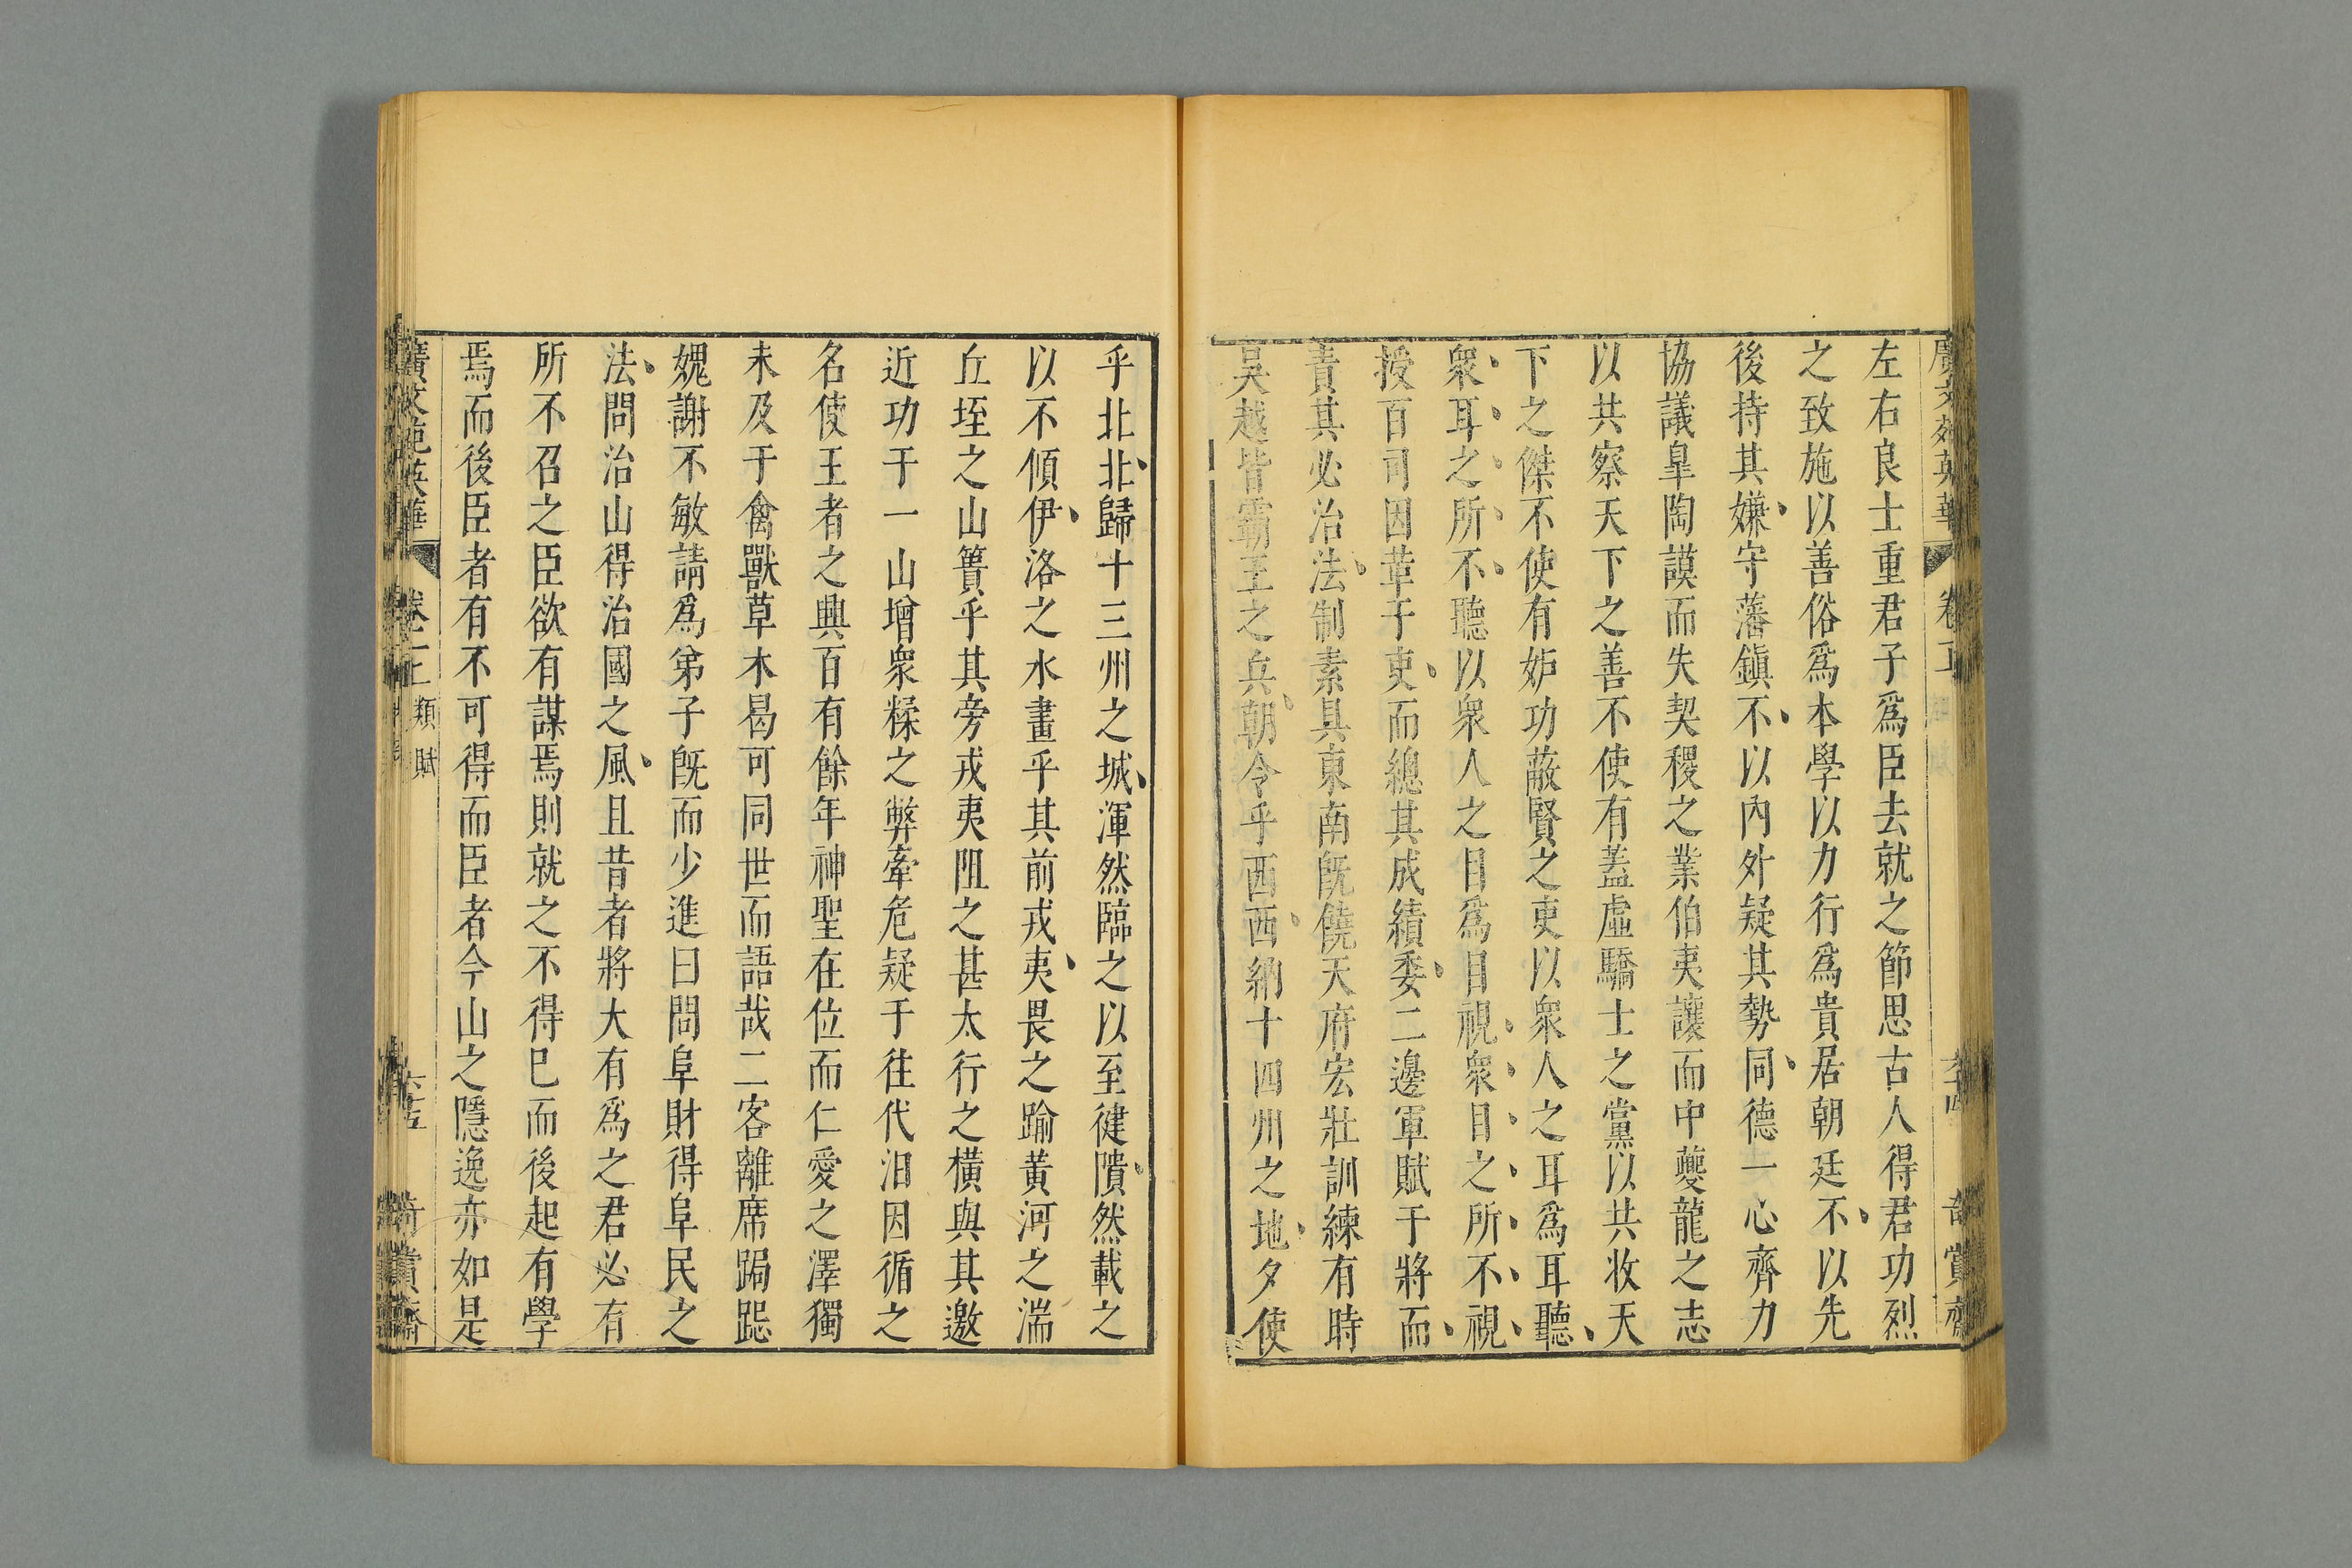 左右良士重君子爲臣去就之節思古人得君功烈
之致施以善俗爲本學以力行爲貴居朝廷不以先
後持其嫌守藩鎭不以內外疑其勢同德一心齊力
協議臯陶謨而失契稷之業伯夷讓而中夔龍之志
以共察天下之善不使有蓋虛驕士之黨以共收天
下之傑不使有妒功蔽賢之吏以衆人之耳爲耳聽
衆耳之所不聽以衆人之目爲目視衆目之所不視
授百司因革于吏而總其成績委二邊軍賦于將而
責其必治法制素具東南旣饒天府宏壯訓練有時
吳越皆霸王之兵朝令乎西西納十四州之地夕使
乎北北歸十三州之城渾然臨之以至健隤然載之
以不傾伊洛之水畫乎其前戎夷畏之踰黄河之湍
丘垤之山簣乎其旁戎夷阻之甚太行之橫與其邀
近功于一山增衆糅之弊牽危疑于往代汨因循之
名使王者之興百有餘年神聖在位而仁愛之澤獨
未及于禽獸草木曷可同世而語哉二客離席跼跽
媿謝不敏請爲弟子旣而少進曰問阜財得阜民之
法問治山得治國之風且昔者將大有爲之君必有
所不召之臣欲有謀焉則就之不得已而後起有學
焉而後臣者有不可得而臣者今山之隱逸亦如是
廣文苑英華 卷一上 類賦 六十五 奇賞齋